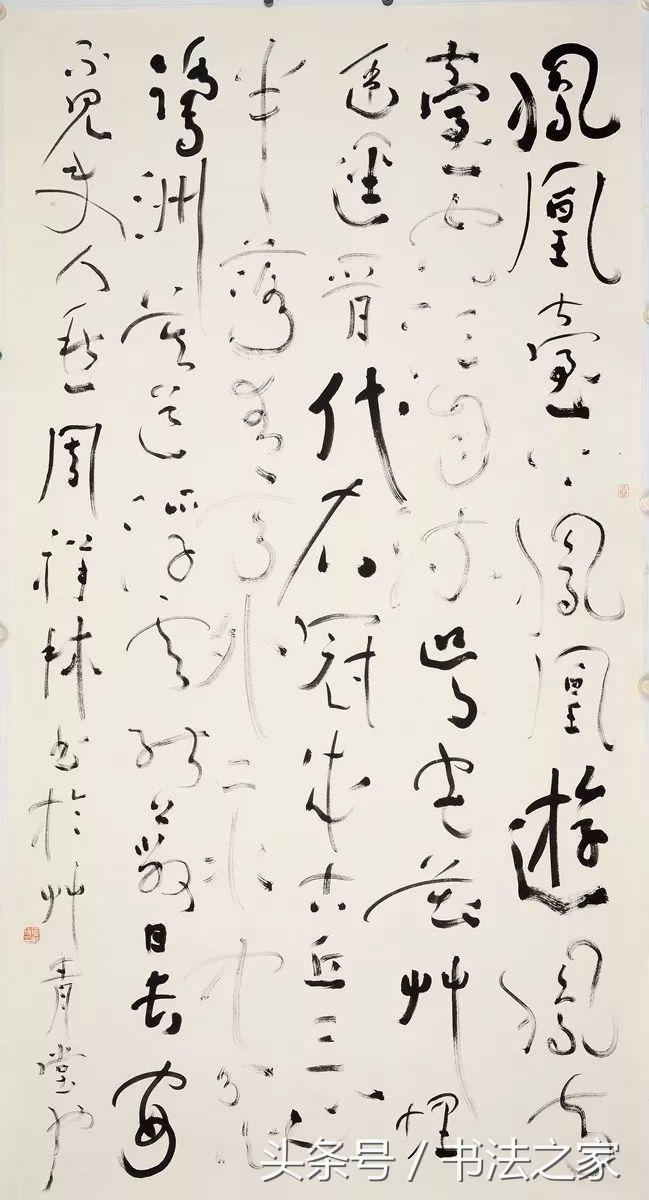 鳳凰臺上鳳凰遊鳳去
臺空江自流吳宮花艸埋
幽徑晉代衣冠成古丘三山
半落青天外二水中分白
鷺洲總為浮雲能蔽日長安
不見使人愁周祥林書於艸青堂
头条号 / 书法之家